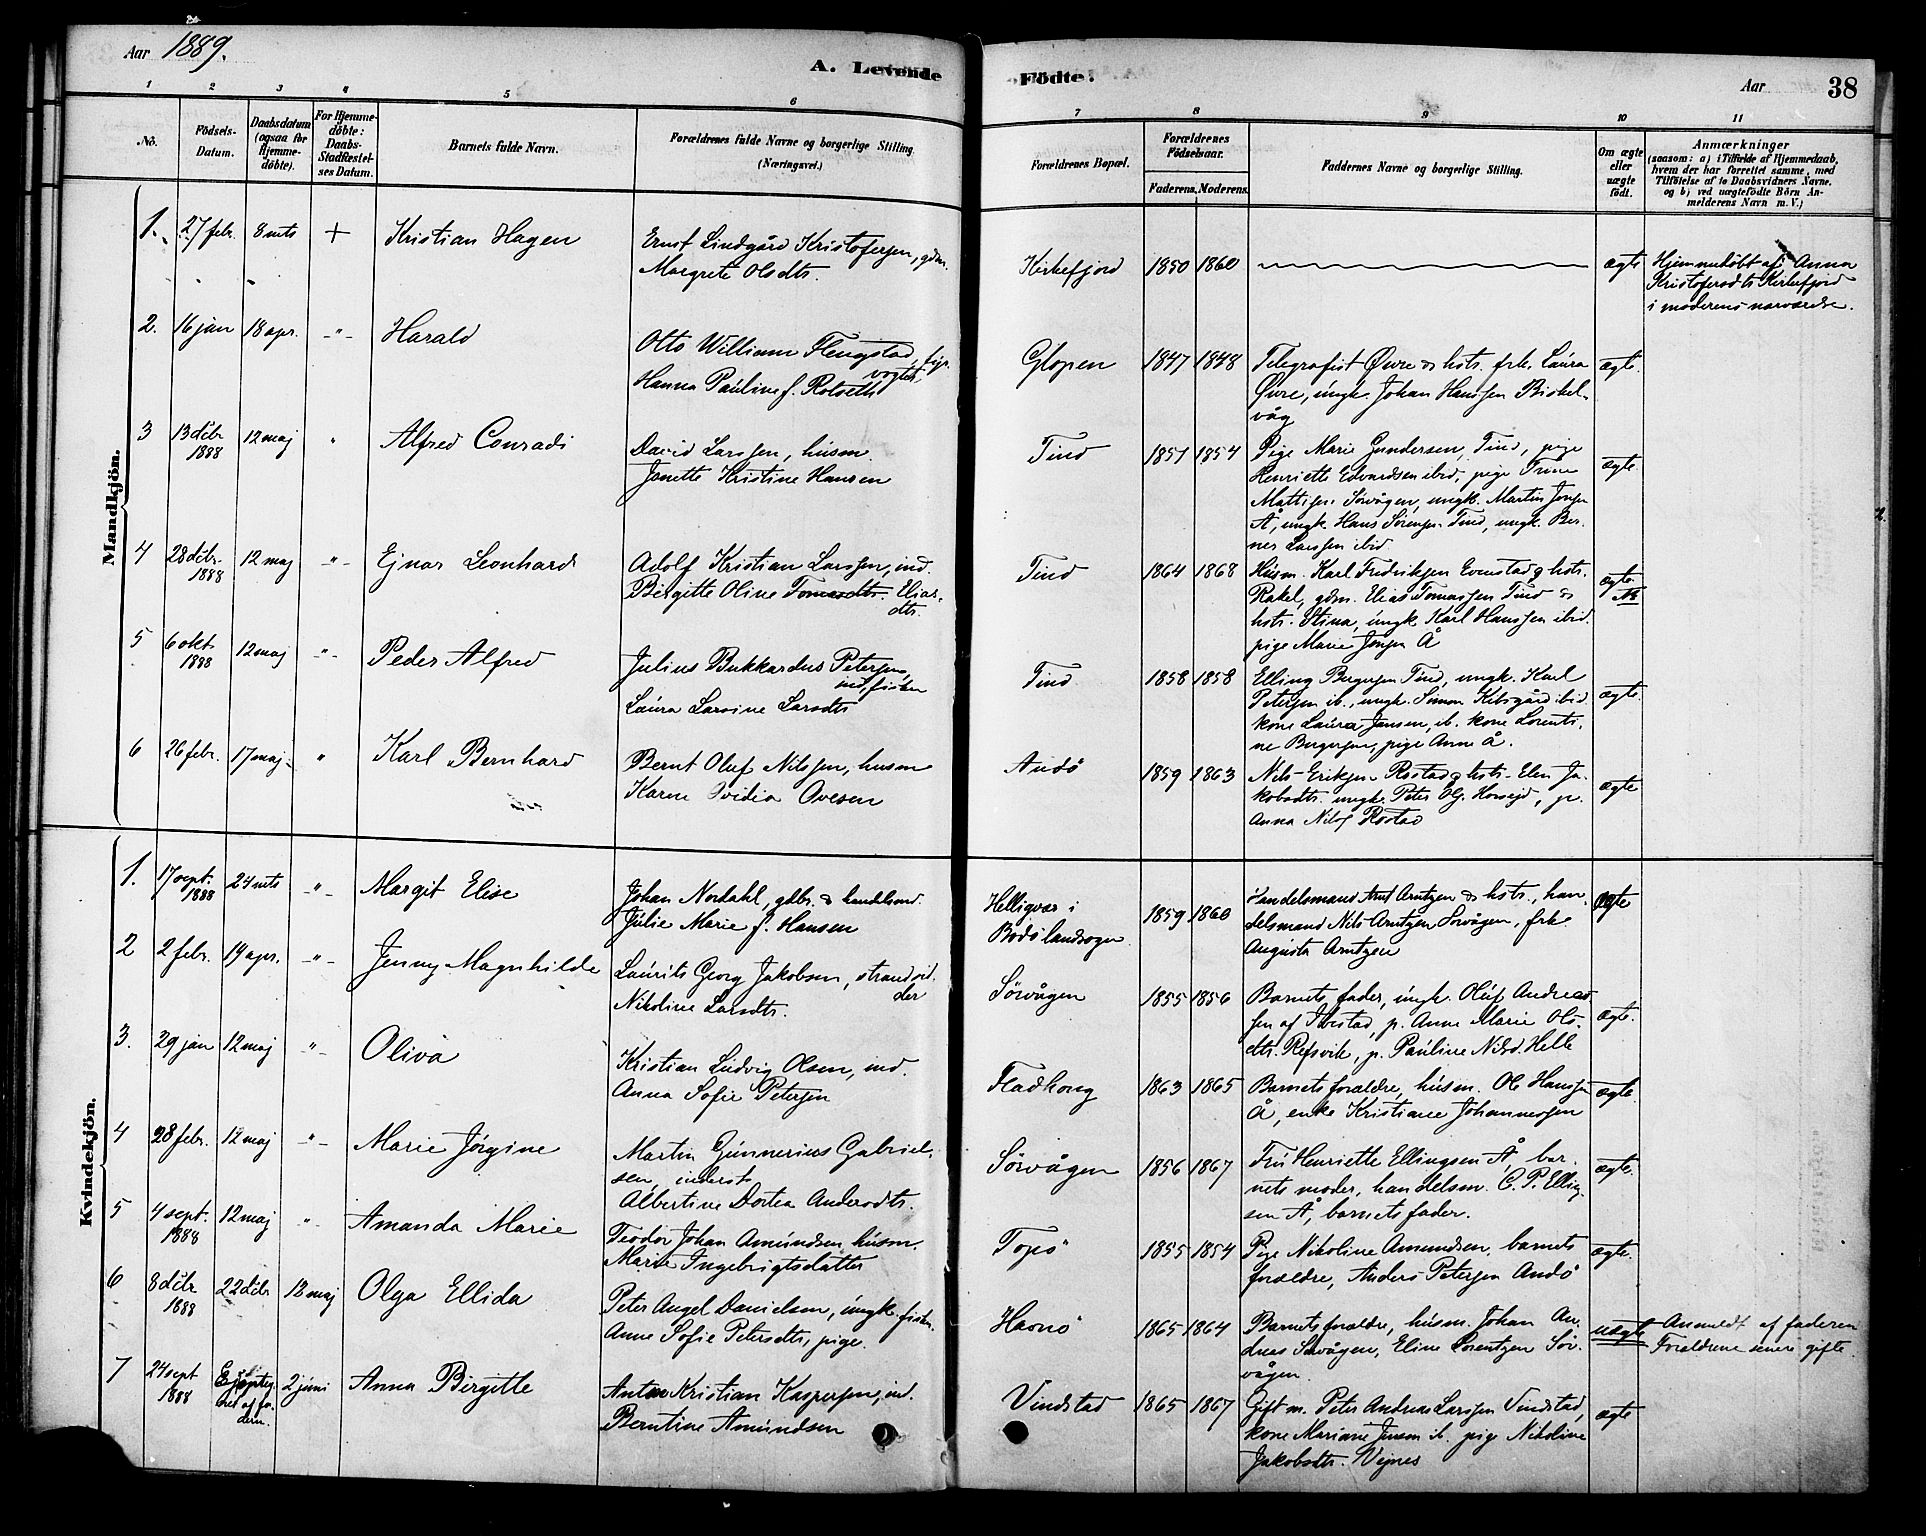 Aar 1889.
A. Levende
Födte.
Aar
38
1 2 3 4 5 6 7 8 9 10 11
No.
Födsels-
Datum.
Daabsdatum
(ogsaa for
Hjemme-
döbte).
For Hjemme-
döbte:
Daabs-
Stadfæstel-
ses Datum.
Barnets fulde Navn.
Forældrenes fulde Navne og borgerlige Stilling
(Næringsvei.)
Forældrenes Bopæl.
Forældrenes
Födselsaar.
Faderens. Moderens.
Faddernes Navne og borgerlige Stilling.
Om ægte
eller
uægte
født.
Anmærkninger
(saasom: a) i Tilfælde af Hjemmedaab,
hvem der har forrettet samme, med
Tilföielse af to Daabsvidners Navne,
og b) ved uægtefödte Börn An-
melderens Navn m. V.)
Mandkjön.
1. 27 febr. 8 mts + Kristian Hagen
Ernst Lindgård Kristofersen, gdm.
Margrete Olsdtr.
Kirkefjord 1850 1860 ægte
Hjemmedøbt af Anna
Kristofersdtr Kirkefjord
i moderens nærværelse.
2. 16 jan 18 apr. -"- Harald
Otto William Flengstad, fyr-
vogter,
Hanna Pauline f. Rotseth
Glopen 1847 1848
Telegrafist Øvre & hstr. frk. Laura
Øvre, ungk. Johan Hanssen Biskel-
våg
ægte.
3 13 dcbr 1888 12 maj " Alfred Conradi
David Larssen, husm.
Janette Kristine Hansen
Tind 1851 1854
Pige Marie Gundersen, Tind, pige
Henriette Edvardsen ibid, pige Trine
Mattisen Sørvågen, ungk. Martin Jensen
Å, ungk Hans Sørensen Tind, ungk. Ber-
ner Larssen ibid.
ægte.
4 28 dcbr. 1888 12 maj -"- Ejnar Leonhard
Adolf Kristian Larssen, ind.
Birgitte Oline Tomasdtr. Elias-
dtr.
Tind 1864 1868
Husm. Karl Fredriksen Evenstad & hstr.
Rakel, gdm. Elias Tomassen Tind &
hstr. Stina, ungk Karl Hanssen ibid.
pige Marie Jensen Å
ægte.
5 6 okt 1888 12 maj -"- Peder Alfred
Julius Bukkardus Petersen,
ind, fisker
Laura Larsine Larsdtr
Tind 1858 1858
Elling Bergersen Tind, ungk. Karl
Petersen ib., ungk. Simon Kibsgård ibid.
kone Laura Jansen, ib. kone Lorents-
ne Bergersen, pige Anne Å.
ægte.
6 26 febr. 17 maj. " Karl Bernhard
Bernt Oluf Nilssen, husm
Karen Ovidia Ovesen
Andø 1859 1863
Nils Eriksen Rostad & hstr. Elen Ja-
kobsdtr. ungk. Peter Ol. , p.
Anna Nilss Rostad
ægte
Kvindekjön.
1. 17 sept. 1888 24 mts -"- Margit Elise
Johan Nordahl, gdbr. & handlsmd.
Julie Marie f. Hansen
Helligvær i
Bodø landsogn 1859 1860
Handelsmand Arntzen & hstr., han-
delsmand Nils Arntzen Sørvågen, frk
Augusta Arntzen
ægte
2 2 febr. 19 apr. -"- Jenny Magnhilde
Laurits Georg Jakobsen, strandsid-
der
Nikoline Larsdtr.
Sørvågen 1855 1856
Barnets fader, ungk. Oluf Andreas-
sen af Ibestad, p. Anne Marie Ols-
dtr. Refsvik, p. Pauline Nilsd. Helle
ægte.
3. 29 jan 12 maj -"- Oliva
Kristian Ludvig Olsen, ind.
Anna Sofie Petersen
Fladkong 1863 1865
Barnets forældre, husm. Ole Hanssen
Å, enke Kristiane Johannessen
ægte.
4 28 febr. 12 maj -"- Marie Jørgine
Martin Gunnerius Gabriel-
sen, inderst
Albertine Dortea Andersdtr.
Sørvågen 1856 1867
Fru Henriette Ellingsen Å, bar-
nets moder, handelsm. C. P. Elling-
sen Å, barnets fader.
ægte.
5 4 sept. 1888 12 maj " Amanda Marie
Teodor Johan Amundsen, husm.
Marie Ingebrigtsdatter
Topø 1855 1854
Pige Nikoline Amundsen, barnets
forældre, Anders Petersen Andø
ægte.
6 8 dcbr 1888 22 dcbr 12 maj Olga Ellida
Peter Angel Danielsen, ungk. fisker.
Anne Sofie Petersdtr, pige.
Havnø 1865 1864
Barnets forældre, husm. Johan An-
dreas Sørvågen, Eline Lorentzen Sør-
vågen.
uægte
Anmeldt af faderen
Forældrene senere gifte.
7 24 sept 1888 2 juni Anna Birgitte
Anton Kristian Kaspersen, ind.
Berntine Amundsen
Vindstad 1865 1867
Gift m. Peter Andreas Larssen Vindstad,
kone Mariane Jensen ib. pige Nikoline
Jakobsdtr. Vejnes
ægte